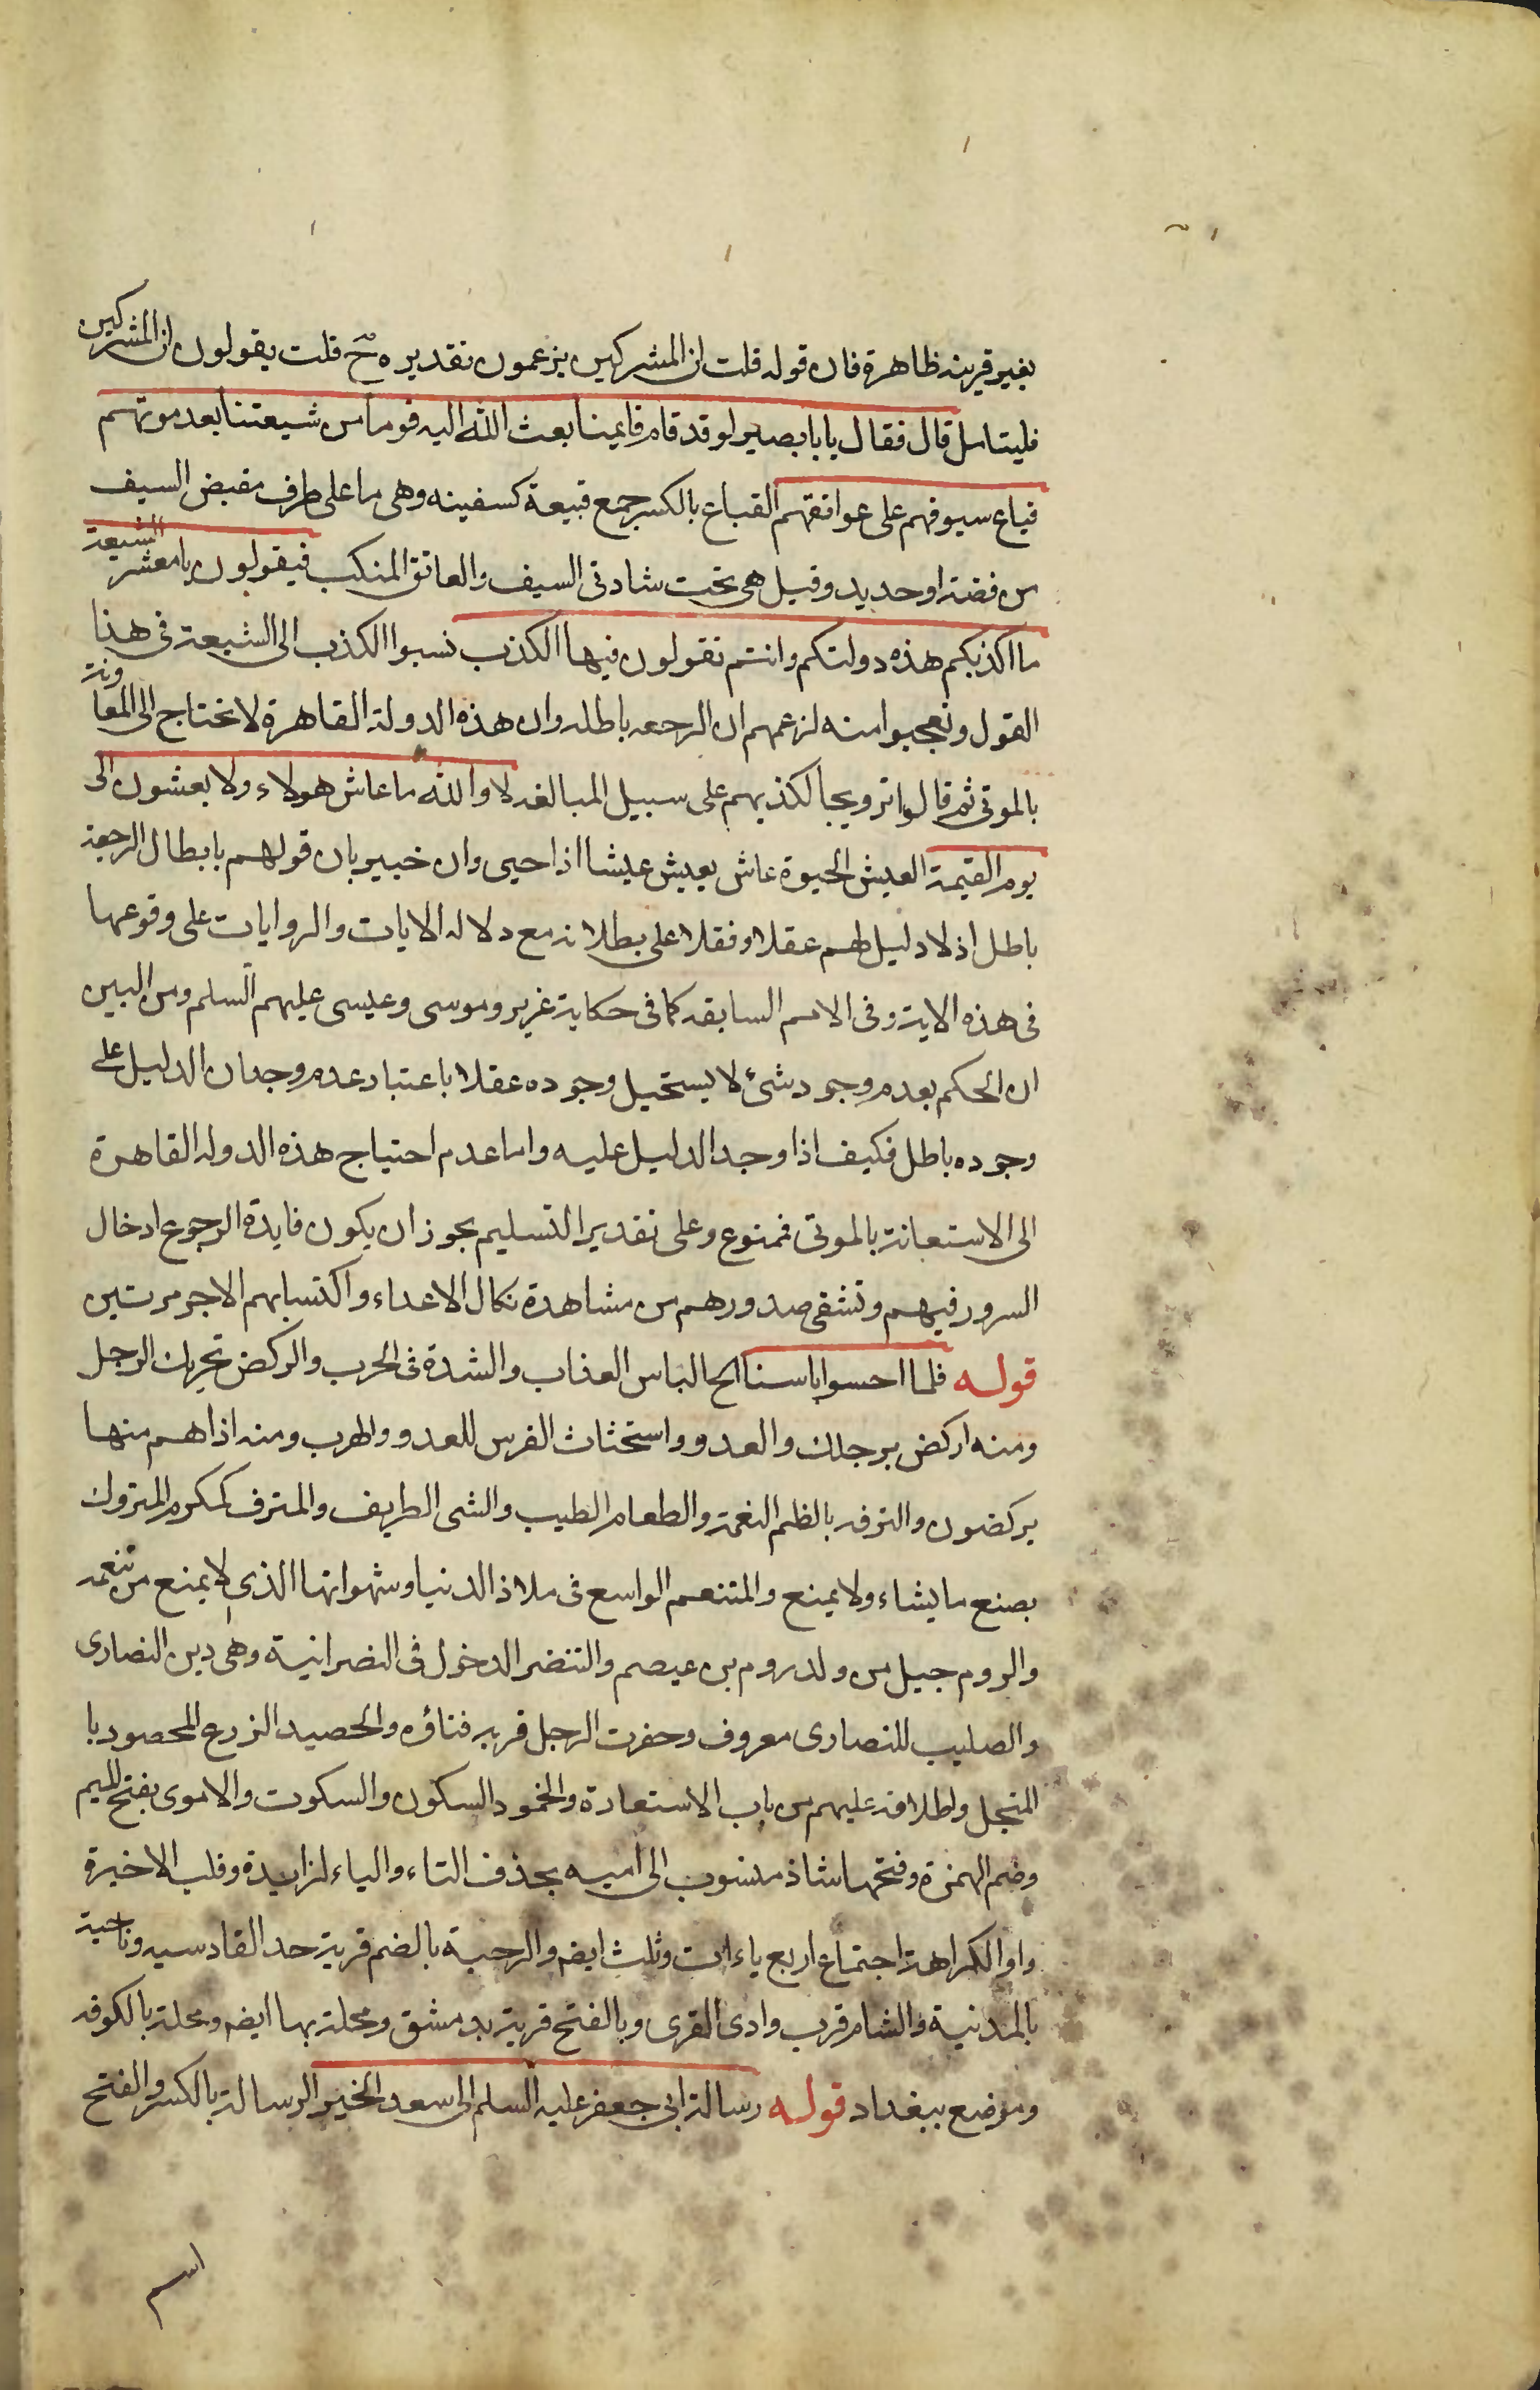 بغير قرينه ظاهرة فان قوله قلت ان المشركين يزعمون تقديره ح قلت يقولون ان المشركين
فليتامل قال فقال يا با بصير لو قد قام قايمنا بعث الله اليه قوما من شيعتنا بعد موتهم
قباع سيوفهم على عواتقهم القباع بالكسر جمع قبيعة كسفينه وهى ما على طرف مقبض السيف
من فضة او حديد وقيل هى تحت شاربى السيف والعاتق المنكب فيقولون يا معشر الشيعة
ما اكذبكم هذه دولتكم وانتم تقولون فيها الكذب نسبوا الكذب الى الشيعة فى هذا
القول وتعجبوا منه لزعمهم ان الرجعه باطله وان هذه الدولة القاهرة لا تحتاج الى المعاونة
بالموتى ثم قالوا ترويجا لكذبهم على سبيل المبالغه لا والله ما عاش هولاء ولا يعشون الى
يوم القيمة العيش الحيوة عاش يعيش عيشا اذا حيى وان خبير بان قولهم بابطال الرجعة
باطل اذ لا دليل لهم عقلا ونقلا على بطلانه مع دلاله الايات والروايات على وقوعها
فى هذه الاية وفى الامم السابقه كما فى حكاية عزير وموسى وعيسى عليهم السلم ومن البين
ان الحكم بعدم وجود شئ لا يستحيل وجوده عقلا باعتبار عدم وجدان الدليل على
وجوده باطل فكيف اذا وجد الدليل عليه واما عدم احتياج هذه الدوله القاهرة
الى الاستعانة بالموتى فممنوع وعلى تقدير التسليم يجوز ان يكون فايدة الرجوع ادخال
السرور فيهم وتشفى صدورهم من مشاهدة نكال الاعداء واكتسابهم الاجر مرتين
قوله فلما احسوا باسنا الخ الباس العذاب والشدة فى الحرب والركض تحريك الرجل
ومنه اركض برجلك والعدو واستحثاث الفرس للعدو والهرب ومنه اذا هم منها
يركضون والترفه بالظم النعمة والطعام الطيب والشى الطريف والمترف كمكرم المتروك
يصنع ما يشاء ولا يمنع والمتنعم الواسع فى ملاذ الدنيا وشهواتها الذى لا يمنع من تنعمه
والروم جيل من ولد روم بن عيصم والتنصر الدخول فى النصرانية وهى دين النصارى
والصليب للنصارى معروف وحضرت الرجل قربه فناؤه والحصيد الزرع المحصود با
المنجل واطلاقه عليهم من باب الاستعارة والخمود السكون والسكوت والاموى بفتح الميم
وضم الهمزة وفتحها شاذ منسوب الى اميه بحذف التاء والياء لزايدة وقلب الاخيرة
واوا لكراهة اجتماع اربع ياءات وثلث ايضم والرحبة بالضم قرية حد القادسيه وناحية
بالمدنية والشام قرب وادى القرى وبالفتح قرية بدمشق ومحلة بها ايضم ومحلة بالكوفه
وموضع ببغداد قوله رسالة ابى جعفر عليه السلم الى سعد الخير الرسالة بالكسر والفتح
اسم